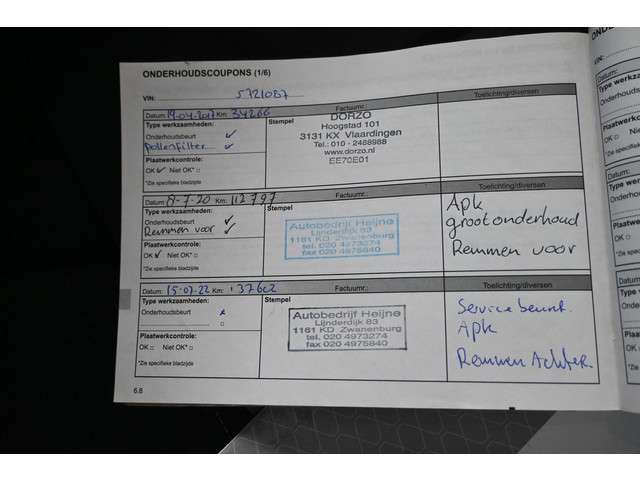 ONDERHOUDSCOUPONS (1/6)
VIN: 5721087
Datum: 19-04-2017 Km: 34266 Factuurnr.: Toelichting/diversen
Type werkzaamheden: Stempel
Onderhoudsbeurt ✓
pollenfilter ✓
Plaatwerkcontrole:
OK ✓ Niet OK* □
*Zie specifieke bladzijde
DORZO
Hoogstad 101
3131 KX Vlaardingen
Tel.: 010 - 2488988
www.dorzo.nl
EE70E01
Datum: 8-7-20 Km: 112797 Factuurnr.: Toelichting/diversen
Type werkzaamheden: Stempel
Onderhoudsbeurt ✓
Remmen voor ✓
Plaatwerkcontrole:
OK ✓ Niet OK* □
*Zie specifieke bladzijde
Autobedrijf Heijne
Lijnderdijk 83
1161 KD Zwanenburg
tel. 020 4973274
fax 020 4975840
Apk
groot onderhoud
Remmen voor
Datum: 15-07-22 Km: 137602 Factuurnr.: Toelichting/diversen
Type werkzaamheden: Stempel
Onderhoudsbeurt x
□
Plaatwerkcontrole:
OK □ Niet OK* □
*Zie specifieke bladzijde
Autobedrijf Heijne
Lijnderdijk 83
1161 KD Zwanenburg
tel. 020 4973274
fax 020 4975840
Service beurt.
Apk
Remmen Achter
6.8